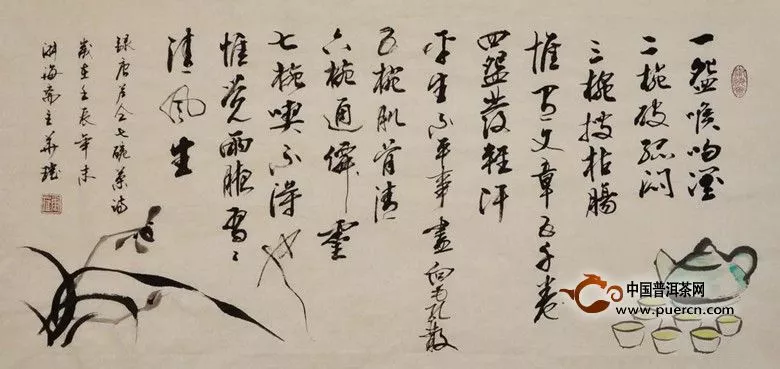 一盌喉吻潤
二椀破孤悶
三椀搜枯腸
惟有文章五千卷
四盌發輕汗
平生不平事盡向毛孔散
五椀肌骨清
六椀通僊靈
七椀喫不得也
惟覺兩腋習々
清風生
録唐盧仝七碗茶诗
歲在壬辰年末
湖海齋主華
中国普洱茶网
www.puercn.com